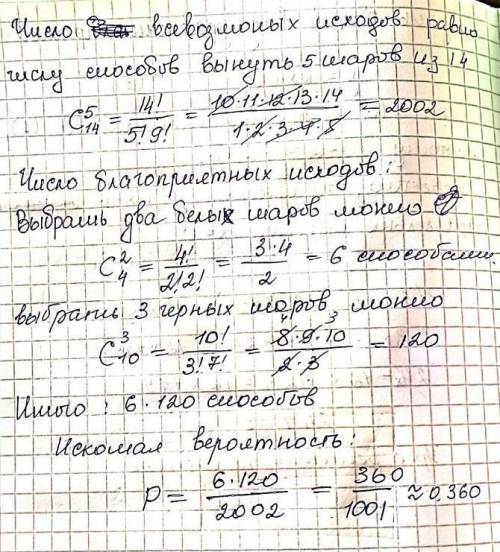 Число всевозможных исходов равно
числу способов вынуть 5 шаров из 14
C₁₄⁵ = 14! / 5!9! = 10·11·12·13·14 / 1·2·3·4·5 = 2002
Число благоприятных исходов:
Выбрать два белых шаров можно
C₄² = 4! / 2!2! = 3·4 / 2 = 6 способами.
выбрать 3 черных шаров можно
C₁₀³ = 10! / 3!7! = 8·9·10 / 2·3 = 120
Итого : 6·120 способов
Искомая вероятность:
P = 6·120 / 2002 = 360 / 1001 ≈ 0,360